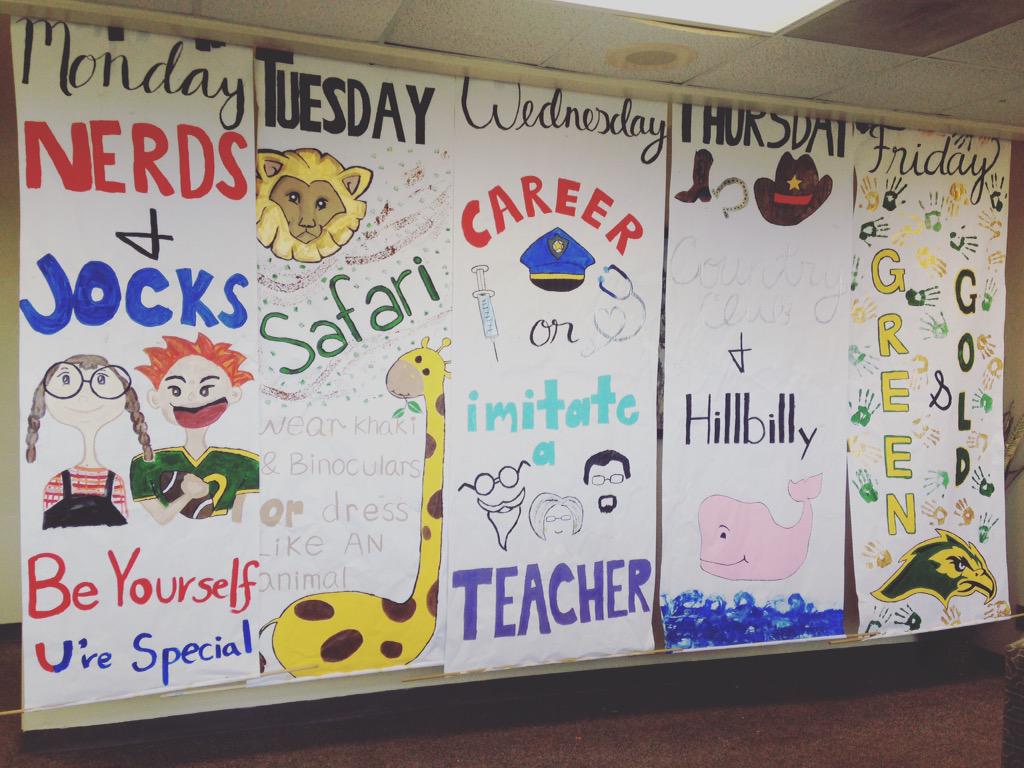 Monday
NERDS
&
JOCKS
2
Be Yourself
U're Special
TUESDAY
Safari
wear khaki
& Binoculars
or dress
Like AN
animal
Wednesday
CAREER
or
imitate
a
TEACHER
THURSDAY
Country
Club
&
Hillbilly
Friday
GREEN
&
GOLD